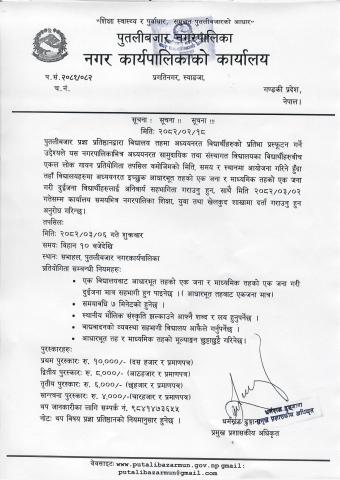 "शिक्षा स्वास्थ्य र पूर्वाधार, समुन्नत पुतलीबजारको आधार"
पुतलीबजार नगरपालिका
नगर कार्यपालिकाको कार्यालय
प.सं.२०८१/०८२
प्रगतिनगर, स्याङ्जा,
च.नं.
गण्डकी प्रदेश,
नेपाल।
सूचना! सूचना!! सूचना!!!
मितिः २०८२/०२/१८
पुतलीबजार प्रज्ञा प्रतिष्ठानद्वारा विद्यालय तहमा अध्ययनरत विद्यार्थीहरुको प्रतिभा प्रस्फुटन गर्ने
उद्देश्यले यस नगरपालिकाभित्र अध्ययनरत सामुदायिक तथा संस्थागत विद्यालयका विद्यार्थीहरुबीच
एकल लोक गायन प्रतियोगिता तपसिल बमोजिमको मिति, समय र स्थानमा आयोजना गरिने हुँदा
तहाँ विद्यालयहरुमा अध्ययनरत इच्छुक आधारभूत तहको एक जना र माध्यमिक तहको एक जना
गरी दुईजना विद्यार्थीहरुलाई अनिवार्य सहभागी गराउनु हुन, साथै मिति २०८२/०३/०२
गतेसम्म कार्यालय समयभित्र नगरपालिका शिक्षा, युवा तथा खेलकुद शाखामा दर्ता गराउनु हुन
अनुरोध गरिन्छ।
तपसिलः
मितिः २०८२/०३/०६ गते शुक्रबार
समयः बिहान १० बजेदेखि
स्थानः सभाहल, पुतलीबजार नगरकार्यपालिका
प्रतियोगिता सम्बन्धी नियमहरुः
• एक विद्यालयबाट आधारभूत तहको एक जना र माध्यमिक तहको एक जना गरी
दुईजना मात्र सहभागी हुन पाइनेछ ।( आधारभूत तहबाट एकजना मात्र)
• समयावधि ७ मिनेटको हुनेछ ।
• स्थानीय मौलिक संस्कृति झल्काउने आफ्नै शब्द र लय हुनुपर्नेछ ।
• बाद्यबादनको व्यवस्था सहभागी विद्यालय आफैले गर्नुपर्नेछ ।
• आधारभूत तह र माध्यमिक तहको मूल्याङ्कन छुट्टाछुट्टै गरिनेछ ।
पुरस्कारहरुः
प्रथम पुरस्कारः रु. १०,०००/- (दस हजार र प्रमाणपत्र)
द्वितीय पुरस्कारः रु. ८,०००/- (आठहजार र प्रमाणपत्र)
तृतीय पुरस्कारः रु. ६,०००/- (छहजार र प्रमाणपत्र)
सान्त्वना पुरस्कारः रु. ४,०००/-(चारहजार र प्रमाणपत्र)
थप जानकारीका लागि सम्पर्क नं. ९८४१७५३६५५
नोटः थप विषय प्रज्ञा प्रतिष्ठानको नियमानुसार हुनेछ ।
प्रमुख प्रशासकीय अधिकृत
वेवसाइटः www.putalibazarmun.gov.np gmail:
putalibazarmun@gmail.com